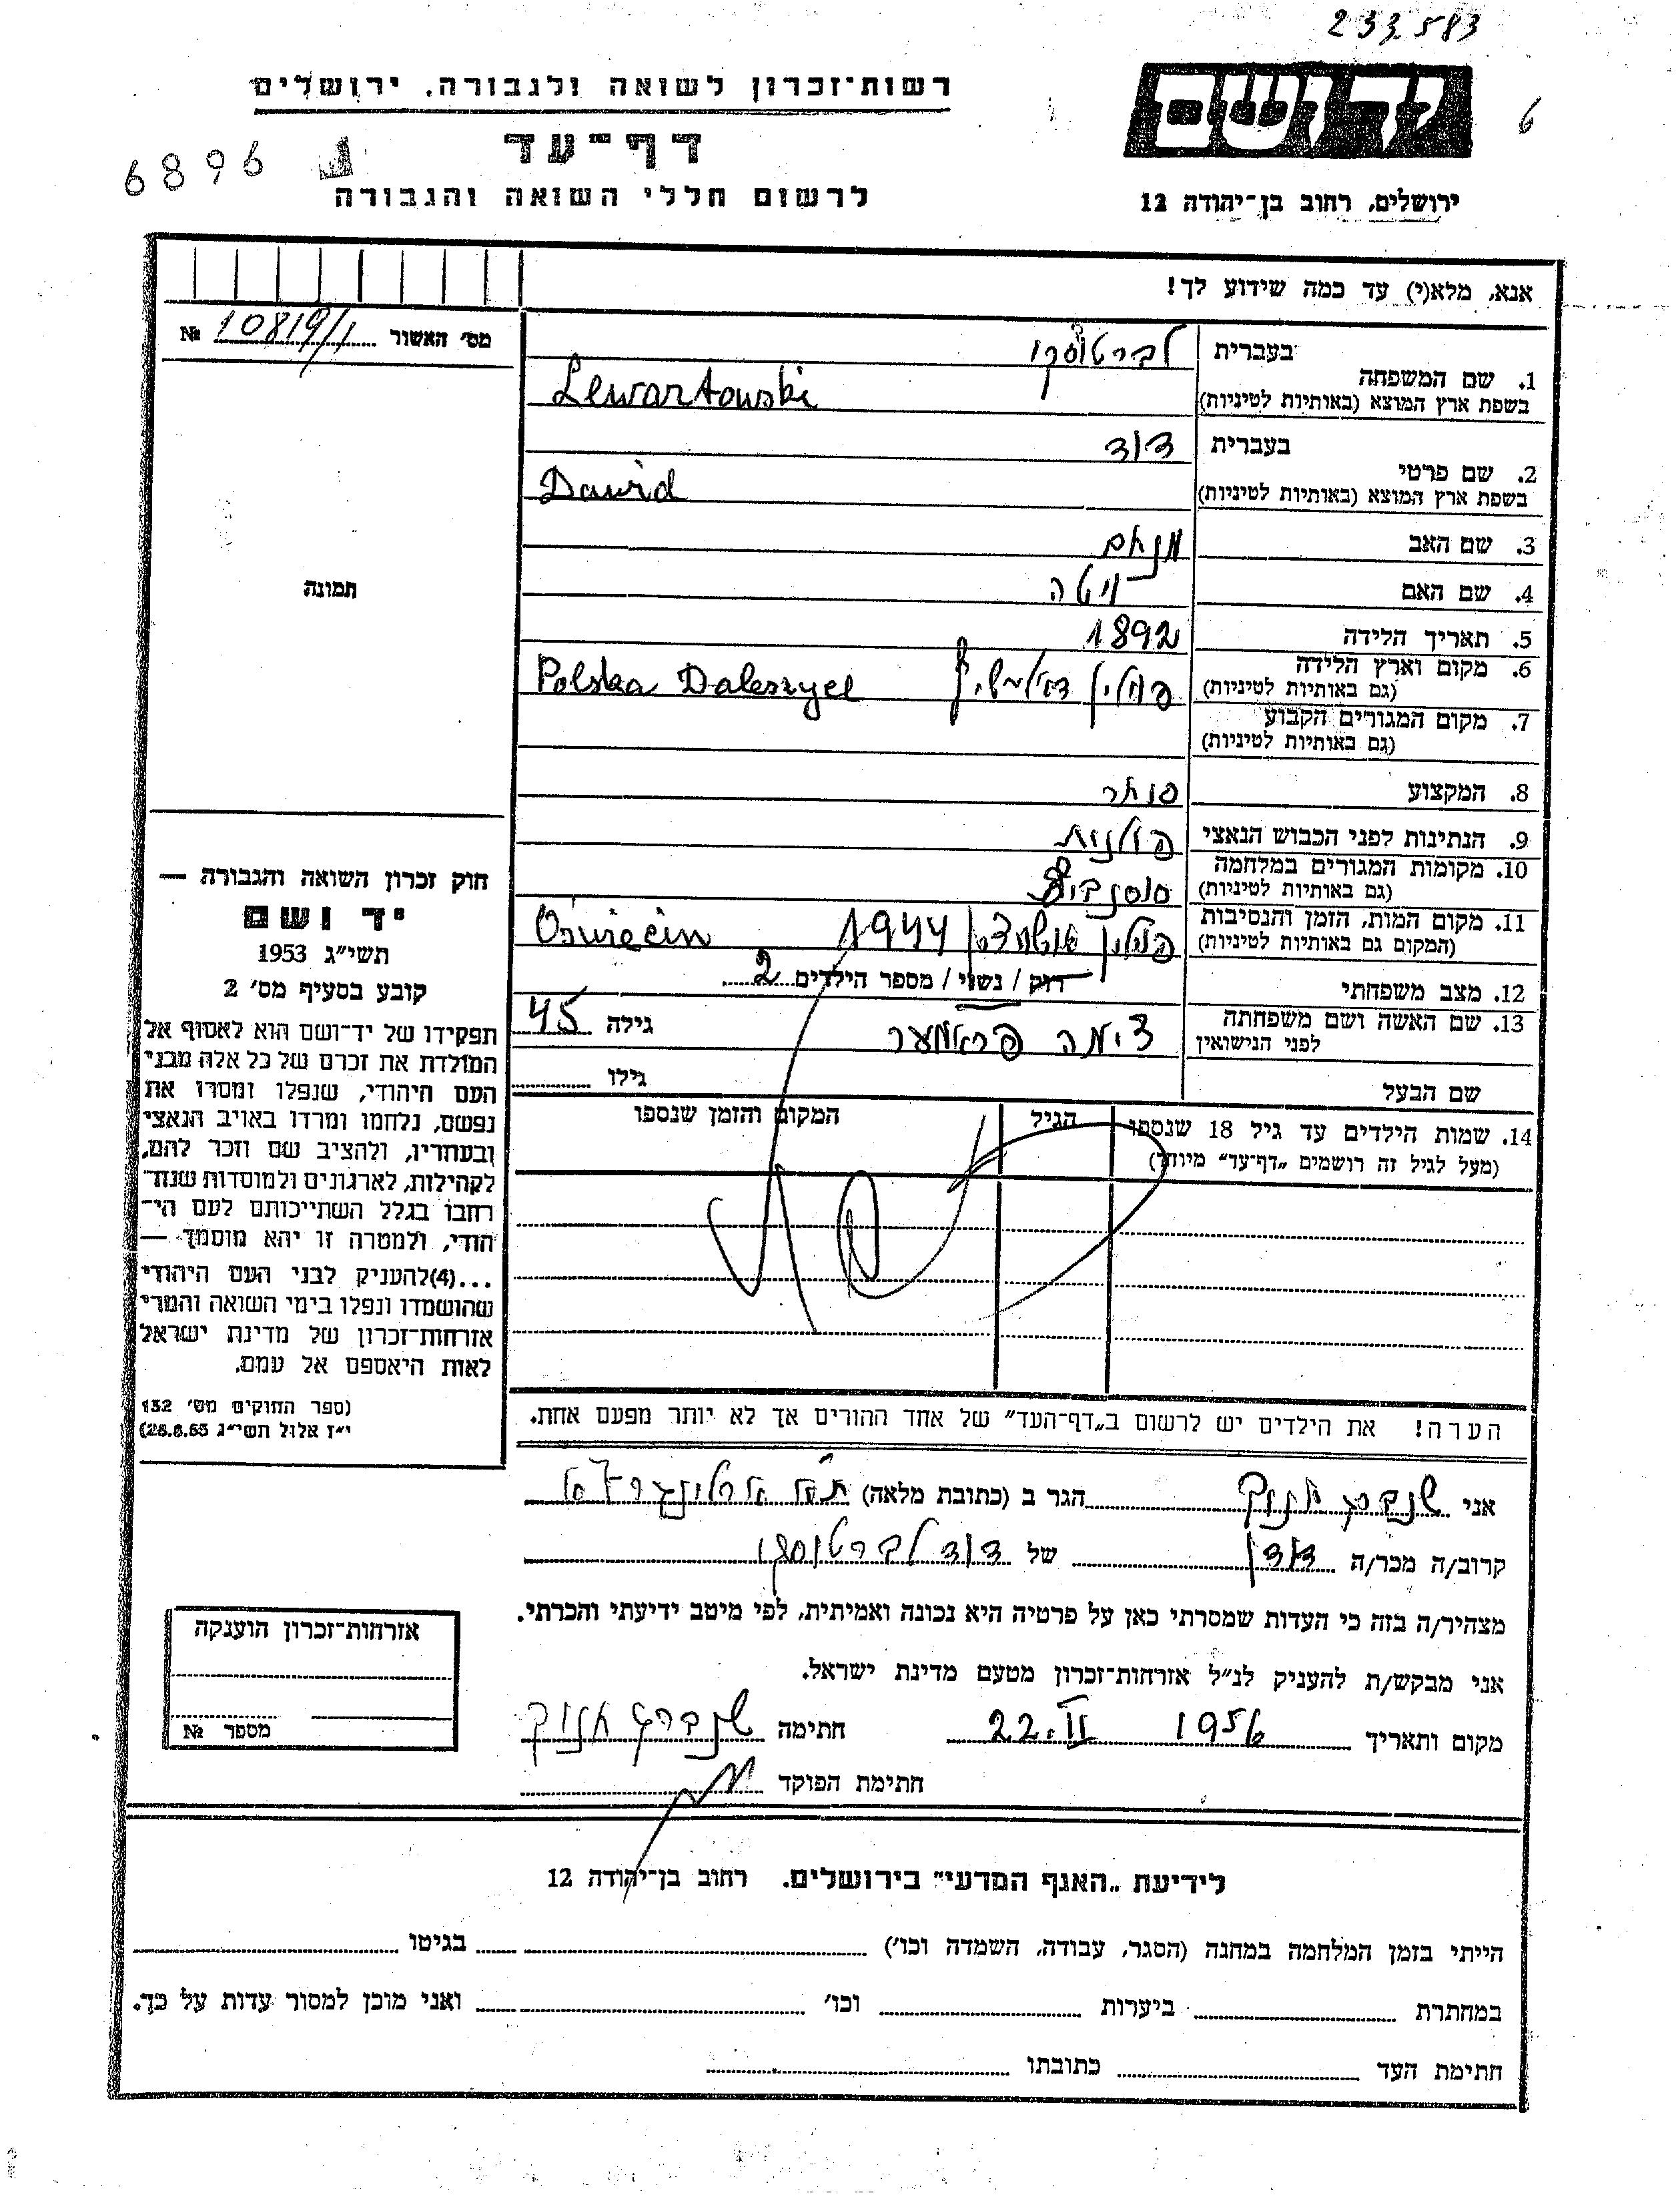 233583
6
רשות־זכרון לשואה ולגבורה, ירושלים
דף־עד
6896
לרשום חללי השואה והגבורה
ירושלים, רחוב בן־יהודה 12
אנא, מלא(י) עד כמה שידוע לך!
מס׳ האשור 10819/1 №
בעברית לברטוסקי
1. שם המשפחה
בשפת ארץ המוצא (באותיות לטיניות) Lewartowski
בעברית דוד
2. שם פרטי
בשפת ארץ המוצא (באותיות לטיניות) Dawid
3. שם האב מנחם
4. שם האם ויטה
5. תאריך הלידה 1892
6. מקום וארץ הלידה
(גם באותיות לטיניות) פולין Polska Daleszyel
7. מקום המגורים הקבוע
(גם באותיות לטיניות)
8. המקצוע סוחר
9. הנתינות לפני הכבוש הנאצי פולנית
10. מקומות המגורים במלחמה
(גם באותיות לטיניות) סוסנוביץ
11. מקום המות, הזמן והנסיבות
(המקום גם באותיות לטיניות) פולין 1944 Oświecim
12. מצב משפחתי רוק / נשוי / מספר הילדים 2
13. שם האשה ושם משפחתה
לפני הנישואין דימה גילה 45
שם הבעל גילו
14. שמות הילדים עד גיל 18 שנספו הגיל המקום והזמן שנספו
(מעל לגיל זה רושמים „דף־עד״ מיוחד)
תמונה
חוק זכרון השואה והגבורה —
יד ושם
תשי״ג 1953
קובע בסעיף מס׳ 2
תפקידו של יד־ושם הוא לאסוף אל
המולדת את זכרם של כל אלה מבני
העם היהודי, שנפלו ומסרו את
נפשם, נלחמו ומרדו באויב הנאצי
ובעוזריו, ולהציב שם וזכר להם,
לקהילות, לארגונים ולמוסדות שנח־
רבו בגלל השתייכותם לעם הי־
הודי, ולמטרה זו יהא מוסמך —
...(4) להעניק לבני העם היהודי
שהושמדו ונפלו בימי השואה והמרי
אזרחות־זכרון של מדינת ישראל
לאות היאספם אל עמם.
(ספר החוקים מס׳ 132
י״ז אלול תשי״ג 28.8.53)
הערה! את הילדים יש לרשום ב„דף־העד״ של אחד ההורים אך לא יותר מפעם אחת.
אני שנברג חנוך הגר ב (כתובת מלאה)
קרוב/ה מכר/ה דודן של דוד לברטוסקי
מצהיר/ה בזה כי העדות שמסרתי כאן על פרטיה היא נכונה ואמיתית, לפי מיטב ידיעתי והכרתי.
אני מבקש/ת להעניק לנ״ל אזרחות־זכרון מטעם מדינת ישראל.
מקום ותאריך 22.II 1956 חתימה שנברג חנוך
חתימת הפוקד
אזרחות־זכרון הוענקה
מספר №
לידיעת „האגף המדעי״ בירושלים. רחוב בן־יהודה 12
הייתי בזמן המלחמה במחנה (הסגר, עבודה, השמדה וכו׳) בגיטו
במחתרת ביערות וכו׳ ואני מוכן למסור עדות על כך.
חתימת העד כתובתו